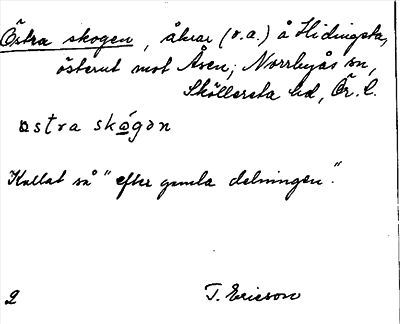 Östra skogen, åkrar (o.a.) å Hidingsta,
österut mot Åsen; Norrbyås sn,
Sköllersta hd, Ör. l.
östra skógon
Kallat så "efter gamla delningen."
2 T. Ericson